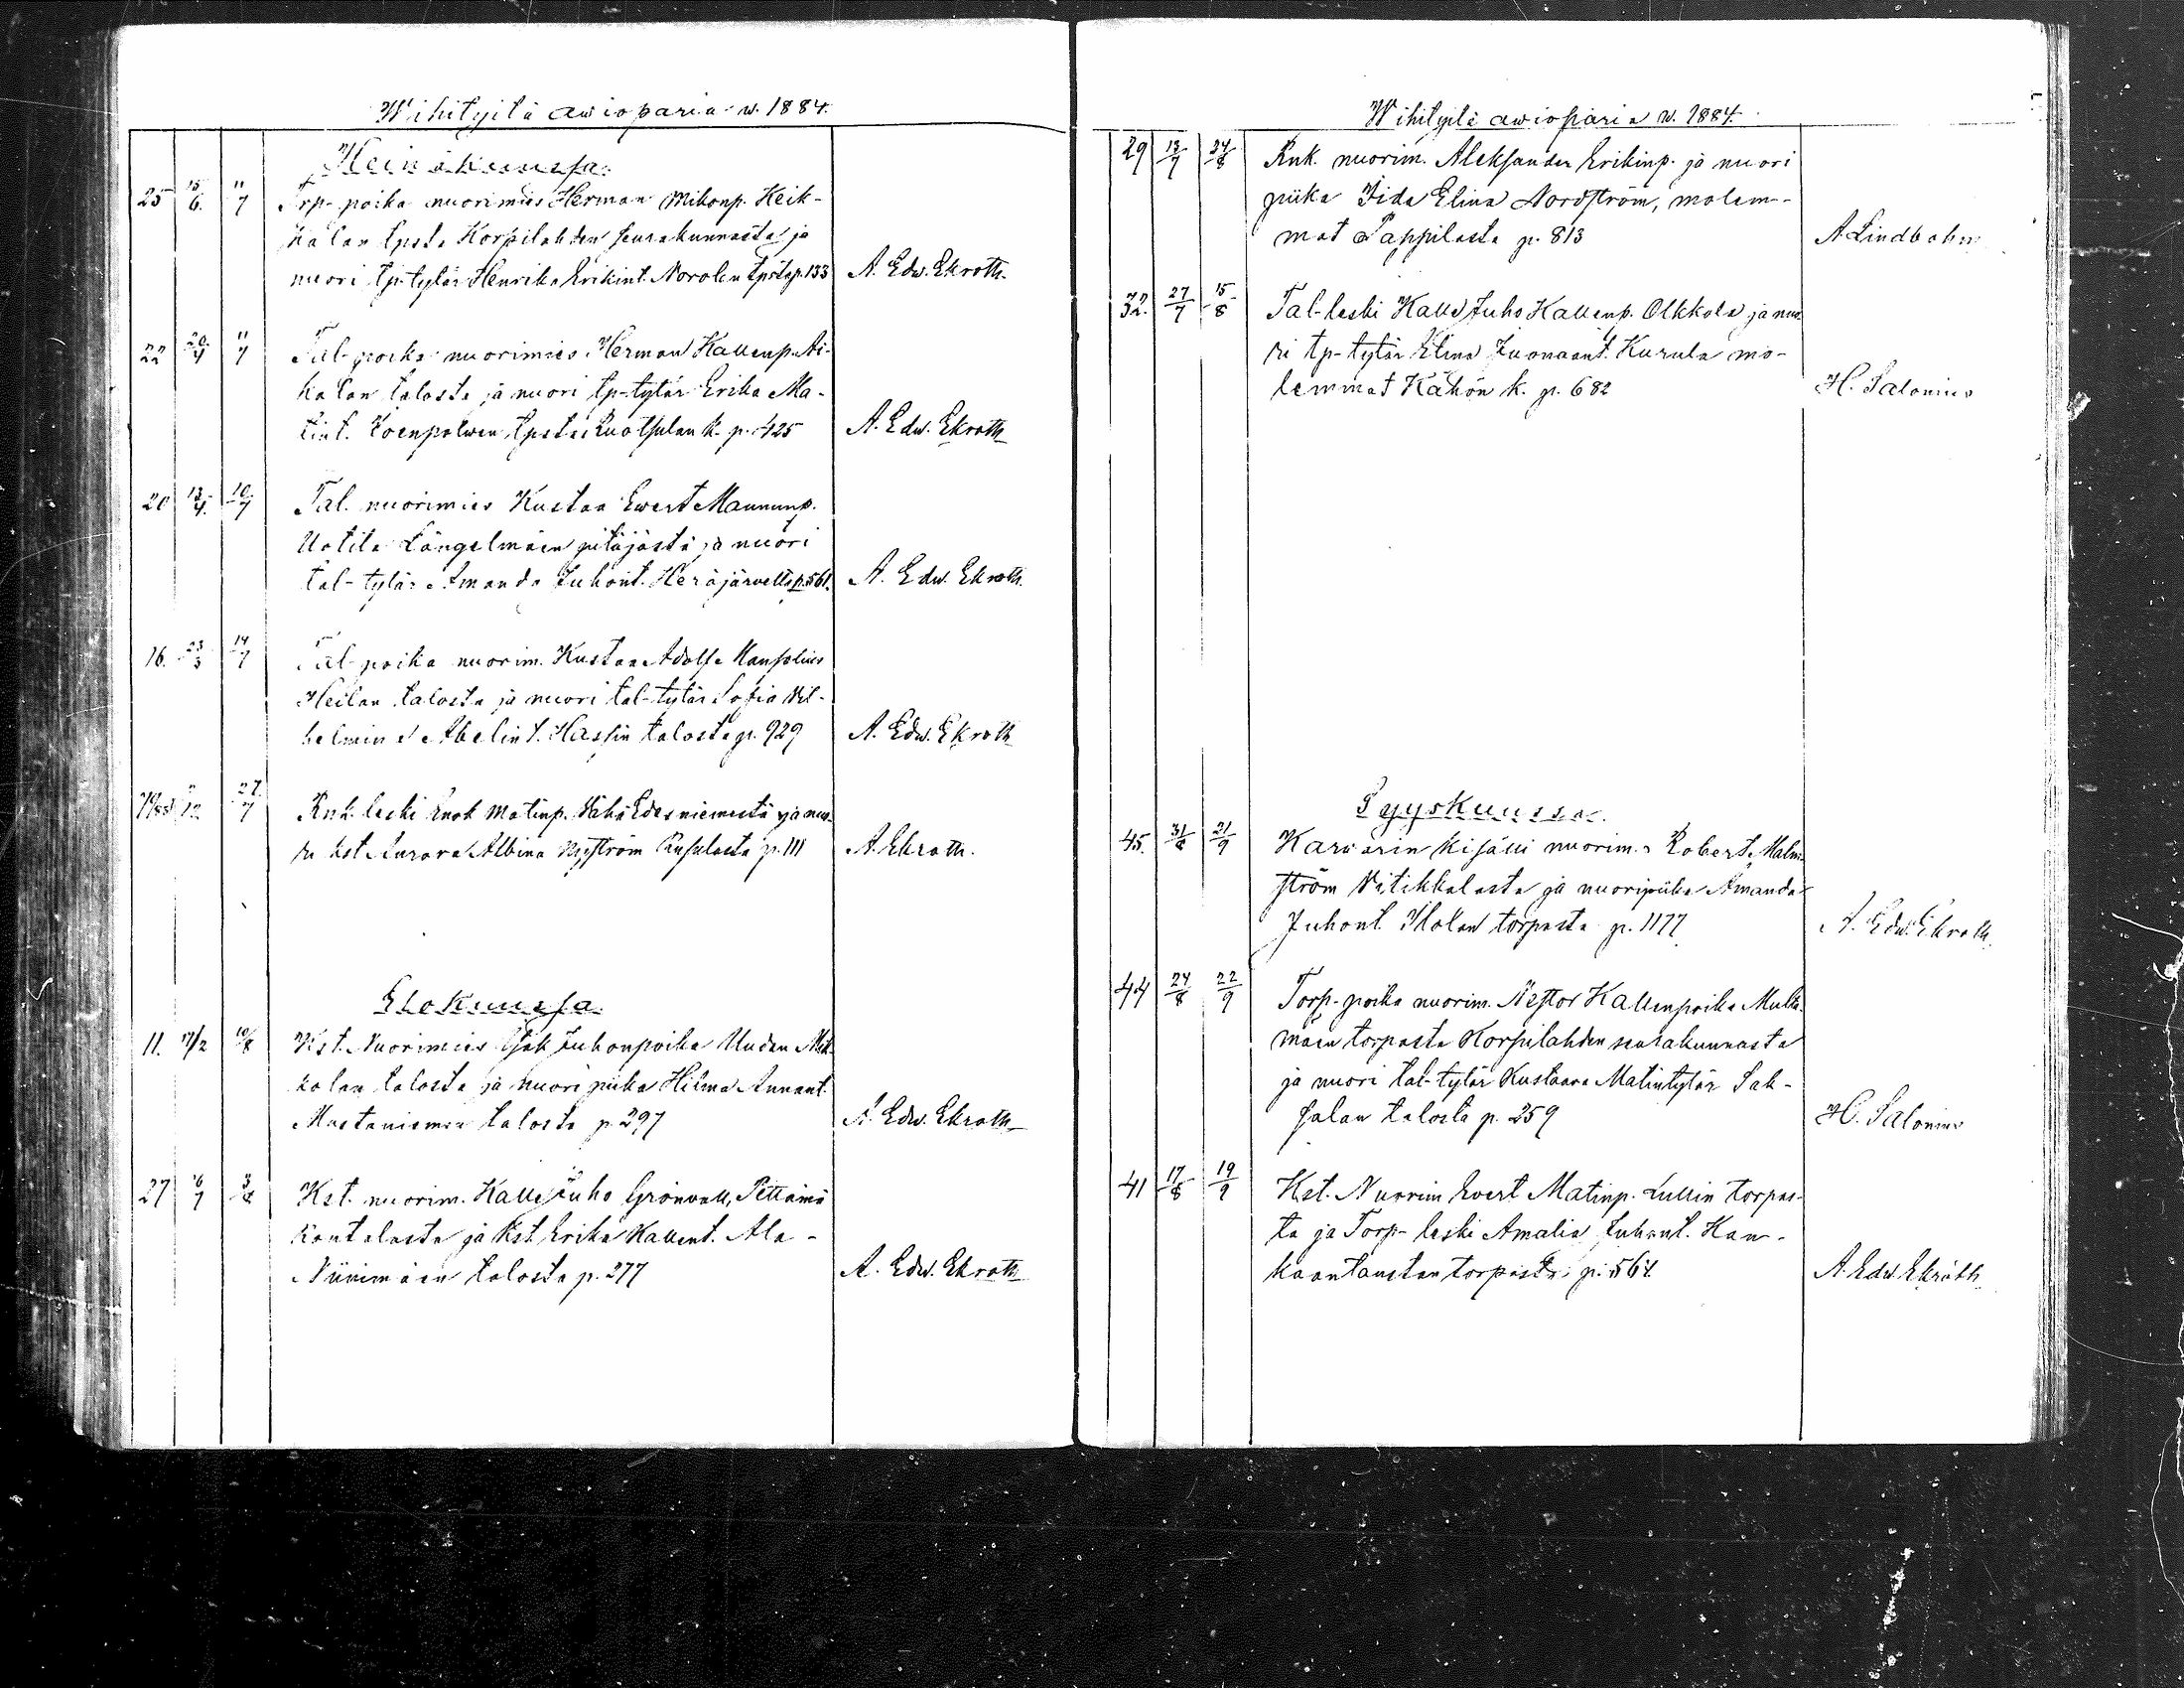 Wihityitä awioparia w. 1884.
Heinäkuussa.
25 15/6. 11/7 Trp-poika nuorimies Herman Mikonp. Heik-
kalan tpsta Korpilahden seurakunnasta ja
nuori tp-tytär Henrika Erikint. Norolan tpsta p. 133 A. Edw. Ekroth.
22 20/4 11/7 Tal-poika nuorimies Herman Kallenp. Ai-
kalan talosta ja nuori tp-tytär Erika Ma-
tint. tpsta Ruotsulan k. p. 425 A. Edw. Ekroth
20 13/4. 10/7 Tal. nuorimies Kustaa Ewert Maununp.
Uotila Längelmäen pitäjästä ja nuori
tal-tytär Amanda Juhont. Heräjärveltä p. 561. A. Edw. Ekroth.
16. 23/3 14/7 Tal-poika nuorim. Kustaa Adolf
Heilan talosta ja nuori tal-tytär Sofia Vil-
helmina Abelint. Hassin talosta p. 929 A. Edw. Ekroth
27/7 Rnk. leski Enok Matinp. Vähä Edesniemestä ja nuo-
ri kst Aurora Albina Nyström p. 111 A. Ekroth.
Elokuussa.
11. 17/2 10/8 Kst. Nuorimies Isak Juhonpoika Uuden Mik-
kolan talosta ja nuori piika Hilma Annant.
Mustaniemen talosta p. 297 A. Edw. Ekroth
27 6/7 3/8 Kst. nuorim. Kalle Juho Grönvall,
ja Kst. Erika Kallent. Ala-
Niinimäen talosta p. 277 A. Edw. Ekroth
Wihityitä awioparia w. 1884.
29 13/7 24/8 Rnk. nuorim. Aleksander Erikinp. ja nuori
piika Iida Elina Nordström, molem-
mat Pappilasta p. 813 A Lindbohm
32. 27/7 15/8 Tal-leski Kalle Juho Kallenp. Olkkola ja nuo-
ri tp-tytär Elina Juonaant. Kurula mo-
lemmat Kähön k. p. 682 H. Salonius
Syyskuussa.
45. 31/8 21/9 Karvarin kisälli nuorim. Robert Malm-
ström Vitikkalasta ja nuoripiika Amanda
Juhont. torpasta p. 1177 A. Edw. Ekroth.
44 24/8 22/9 Torp-poika nuorim. Nestor Kallenpoika Multa-
mäen torpasta Korpilahden seurakunnasta
ja nuori tal-tytär Kustaava Matintytär Sak-
salan talosta p. 259 H. Salonius
41 17/8 19/9 Kst. Nuorim Evert Matinp. Lullin torpas-
ta ja Torp-leski Amalia Juhont. Kan-
kaantaustan torpasta p. 564. A. Edw. Ekroth